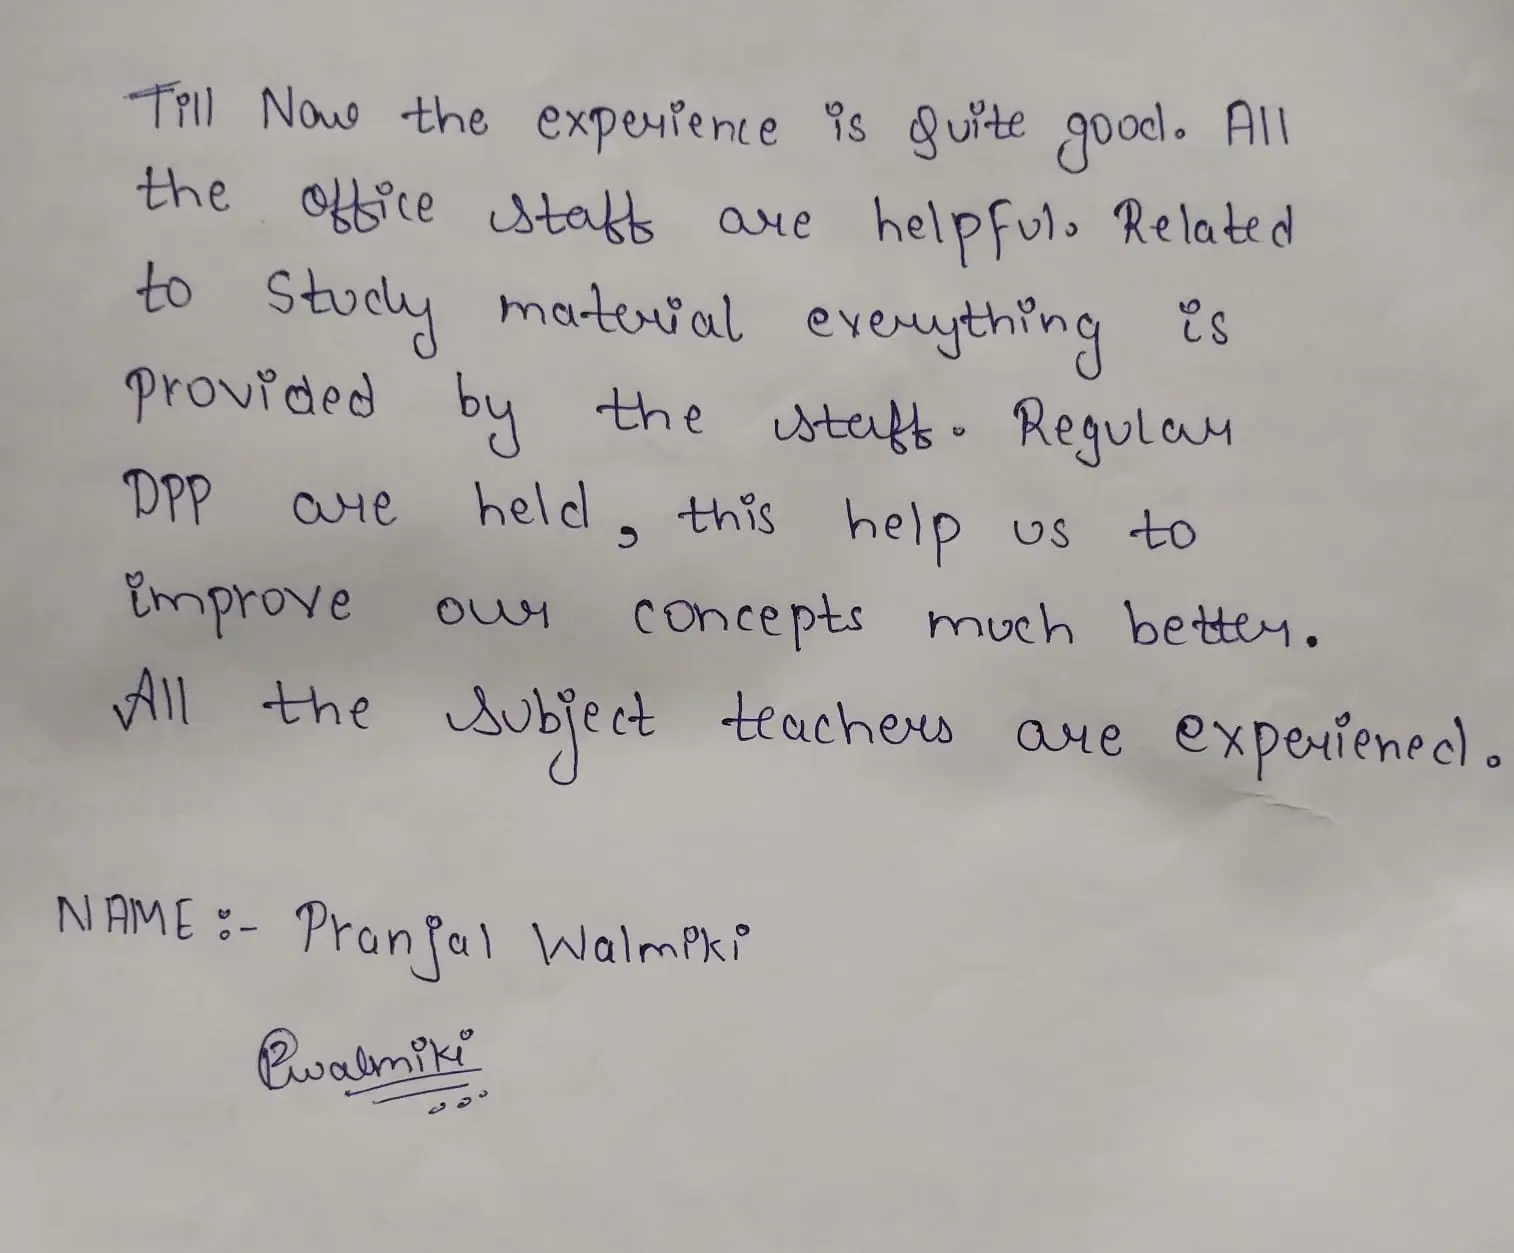 Till Now the experience is Quite good. All
the office staff are helpful. Related
to Study material everything is
provided by the staff. Regular
DPP are held, this help us to
improve our concepts much better.
All the subject teachers are experiened.
NAME :- Pranjal Walmiki
Pwalmiki